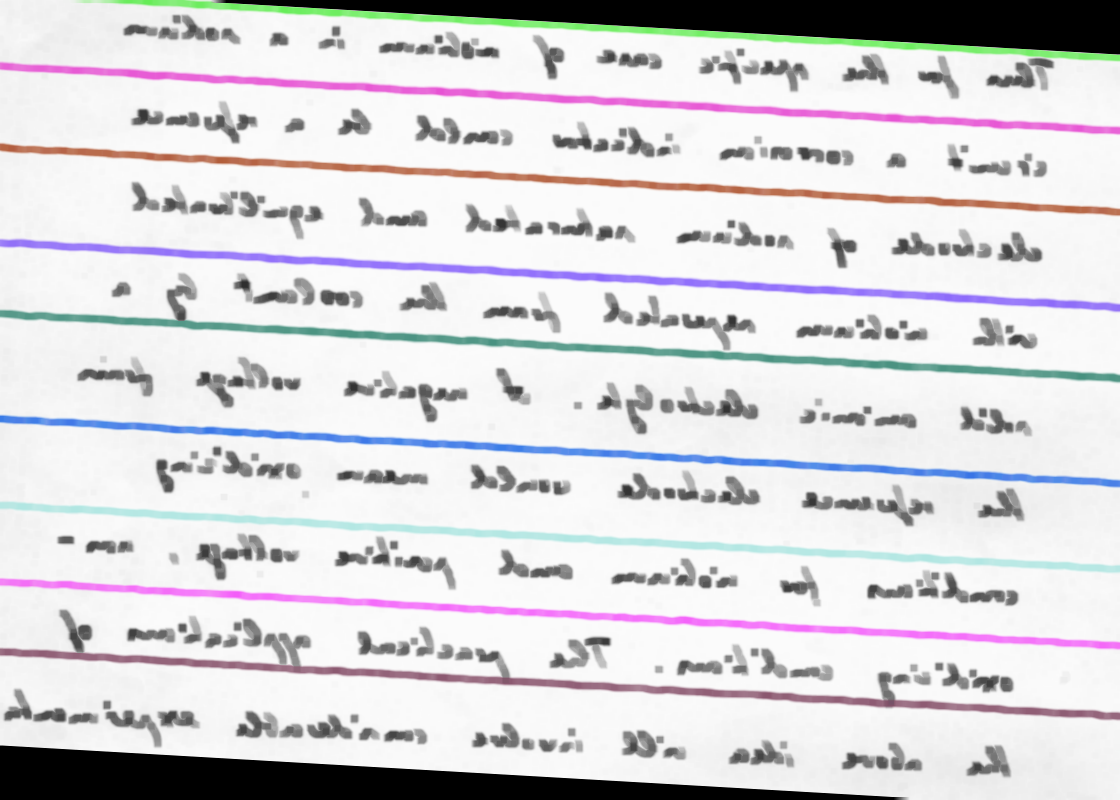 Thus for the specific case of iridium in a sodium
circuit a corrosion indicator could be a reference
electrode of sodium saturated and equilibrated
with iridium separated from the coolant by a
solid ionic electrolyte. A negative voltage from
the reference electrode would mean oxidizing
conditions for iridium and positive voltage, non-
oxidizing conditions. The practical application of
the above idea will involve considerable experiments